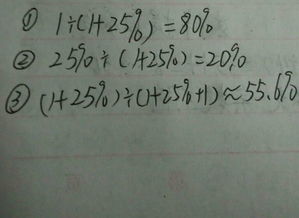 ① 1÷(1+25%)=80%
② 25%÷(1+25%)=20%
③ (1+25%)÷(1+25%+1)≈55.6%